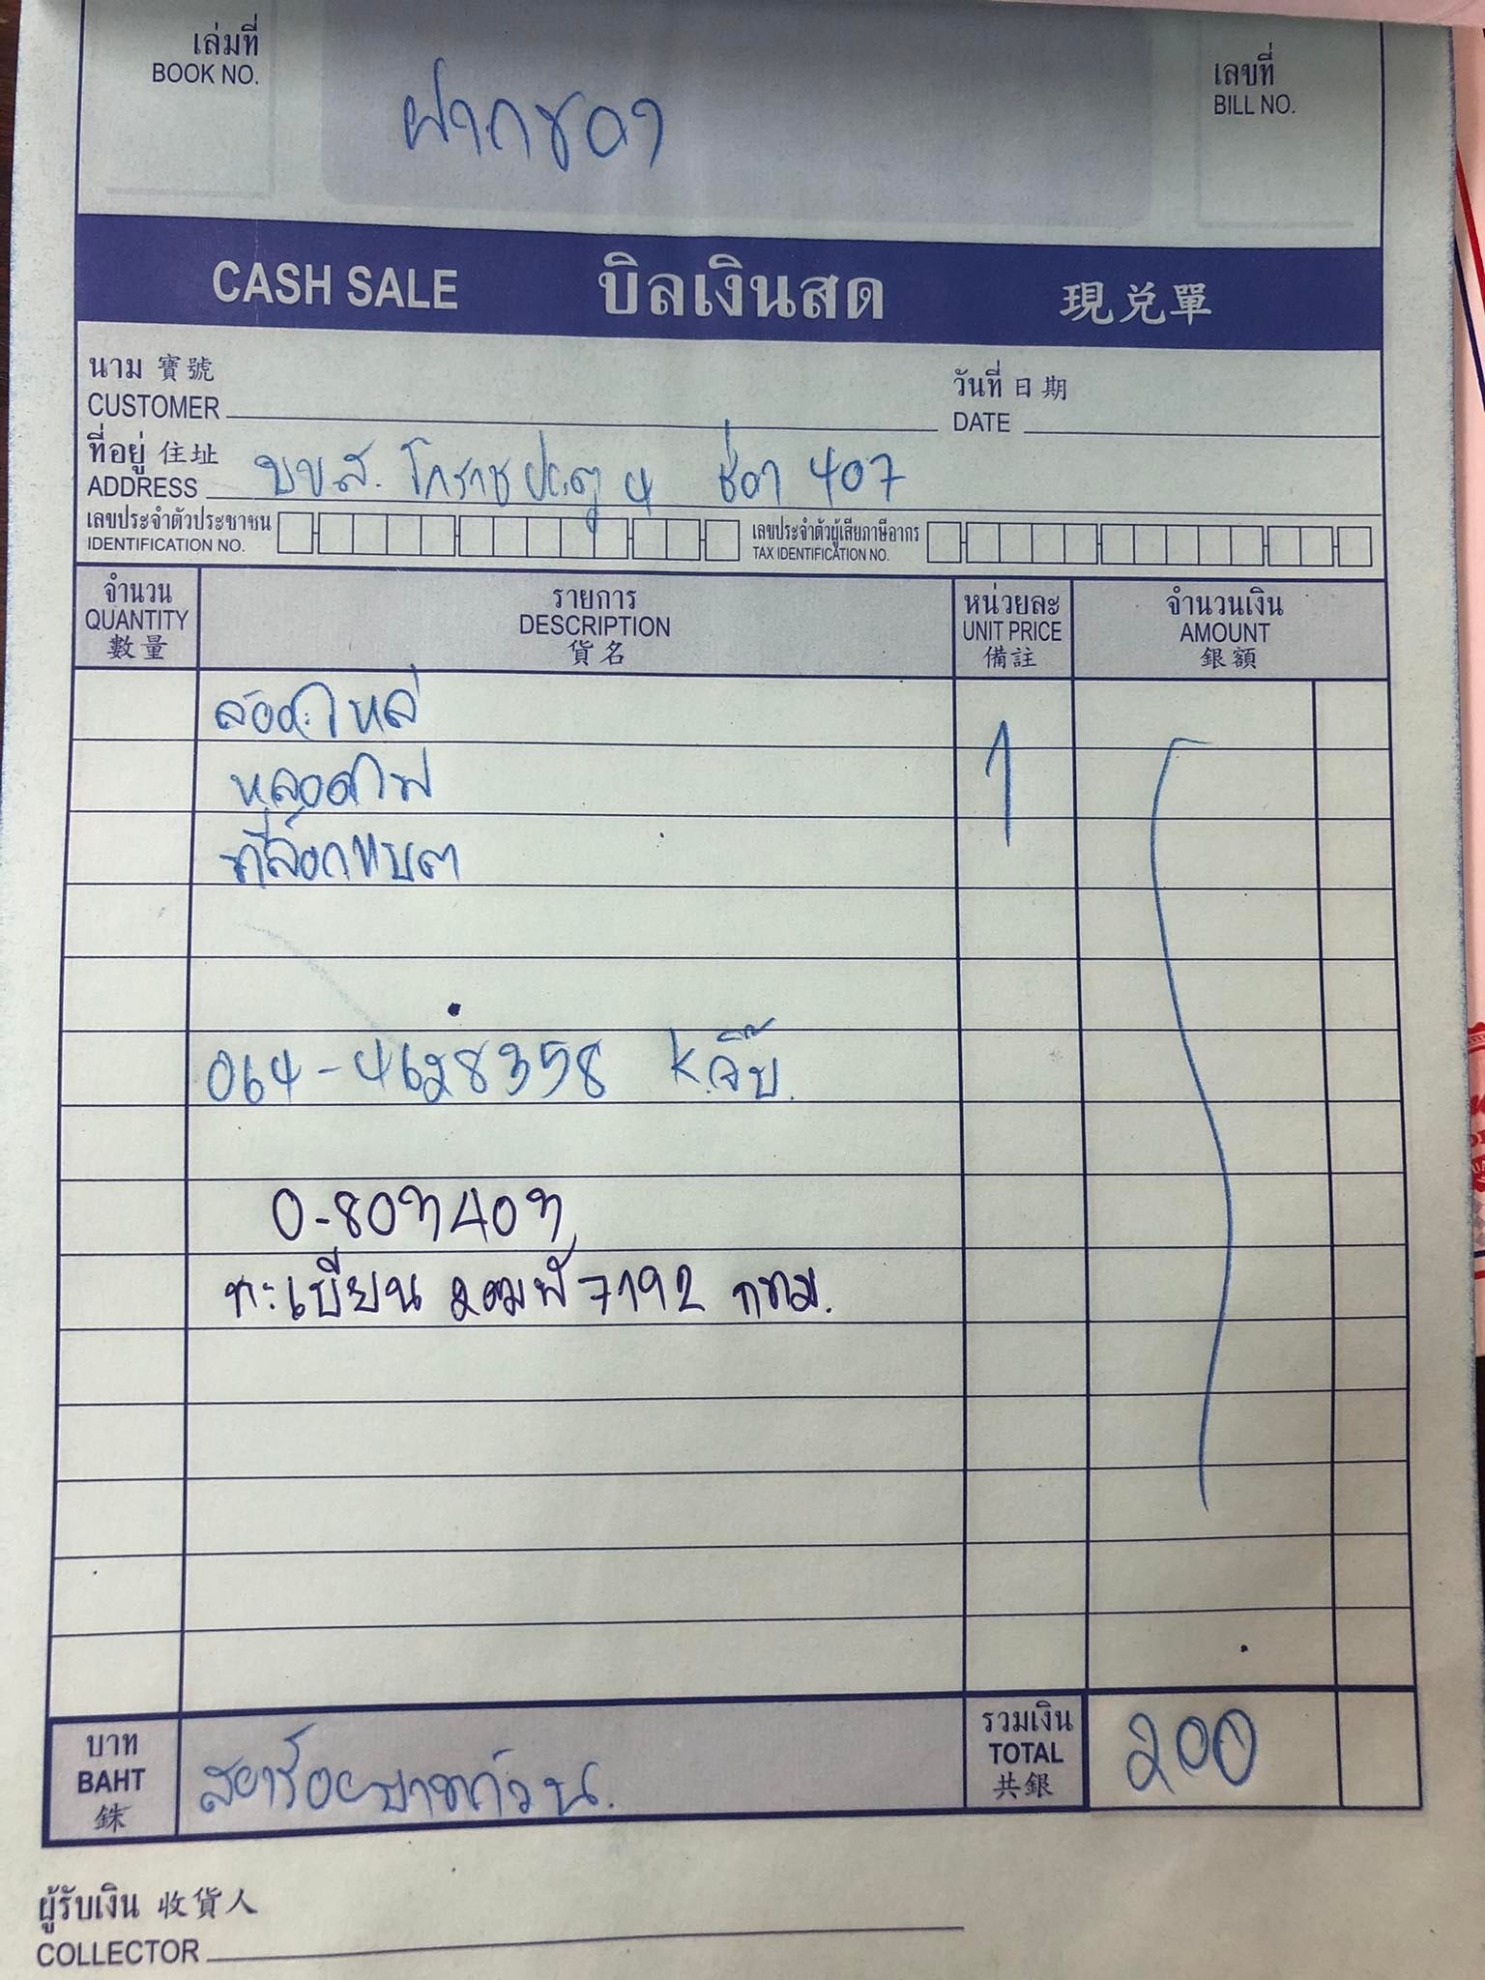 เล่มที่
BOOK NO.
ฝากของ
เลขที่
BILL NO.
CASH SALE บิลเงินสด 現兑單
นาม 寶號
CUSTOMER
วันที่ 日期
DATE
ที่อยู่ 住址
ADDRESS บขส. โคราช ประตู 4 ช่อง 407
เลขประจำตัวประชาชน
IDENTIFICATION NO.
เลขประจำตัวผู้เสียภาษีอากร
TAX IDENTIFICATION NO.
จำนวน
QUANTITY
數量
รายการ
DESCRIPTION
貨名
หน่วยละ
UNIT PRICE
備註
จำนวนเงิน
AMOUNT
銀額
ล้ออะไหล่
หลอดไฟ
ที่ล็อกแบต
1
064-4628358 K.จิ๊บ.
0-807407
ทะเบียน 2ฒฬ 7192 กทม.
บาท
BAHT
銖
สองร้อยบาทถ้วน.
รวมเงิน
TOTAL
共銀
200
ผู้รับเงิน 收貨人
COLLECTOR